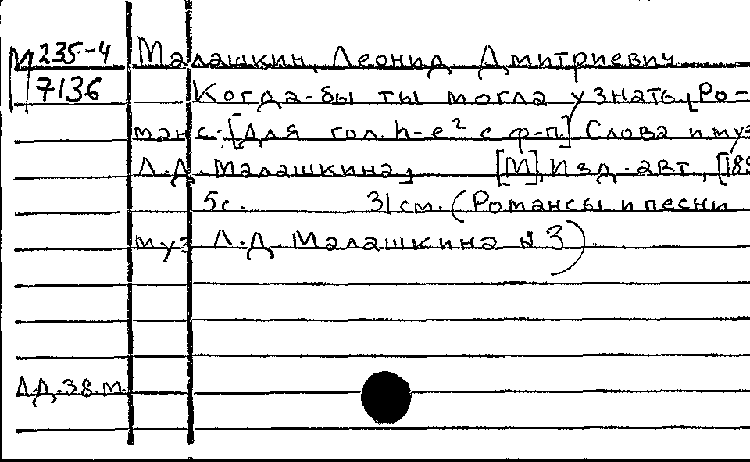 М 235-4 Малашкин, Леонид Дмитриевич
7136 Когда-бы ты могла узнать. [Ро-
манс. [Для гол. h-e² с ф-п.] Слова и муз
Л.Д. Малашкина. [М], Изд. авт., [188
5с. 31 см. (Романсы и песни
муз Л.Д. Малашкина № 3)